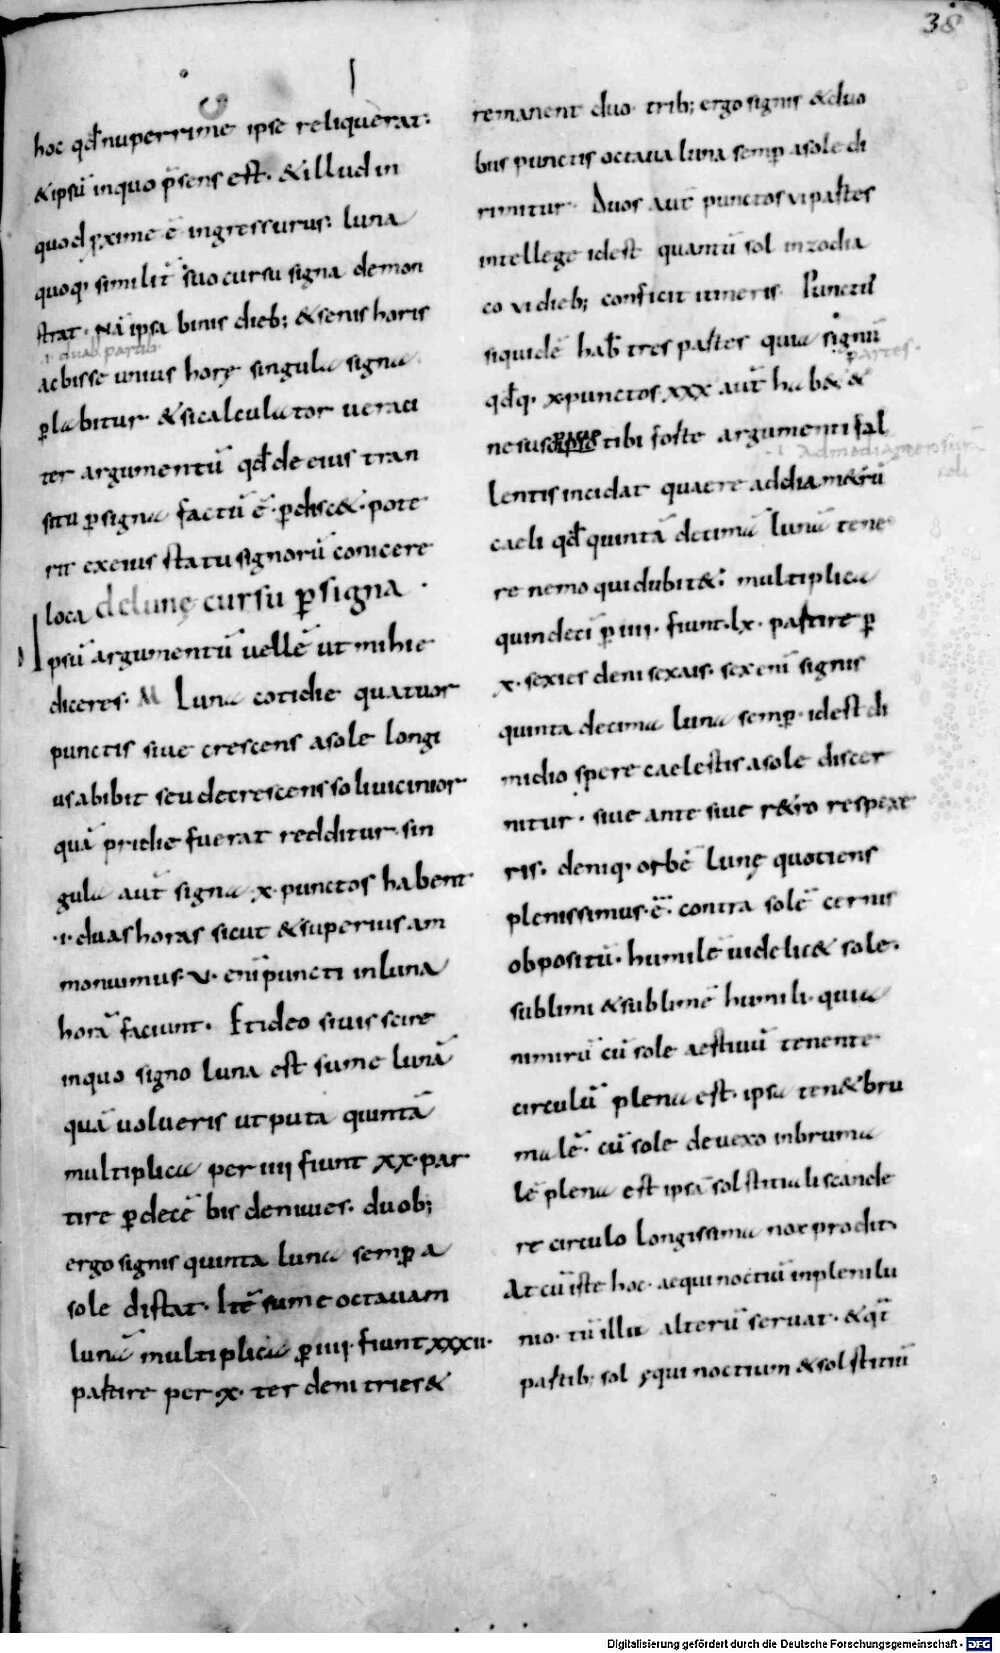 38
hoc qđ nuperrime ipse reliquerat:
& ipsū inquo p̄sens est. & illud in
quod ꝓxime ē ingressurus: luna
quoq; similit̄ suo cursu signa demon
strat. Nā ipsa binis dieb; & senis horis
.i. duab. partib.
ac bisse unius horę singula signa
p̱labitur. & si calculator ueraci
ter argumentū qđ de eius tran
situ p̱ signa factū ē. p̱disc&. pote
rit ex eius statu signorū conicere
loca de lunę cursu p̱ signa
Ipsū argumentū uellē ut mihi e
diceres. M Luna cotidie quatuor
punctis siue crescens a sole longi
us abibit seu decrescens soli uicinior
quā pridie fuerat redditur. sin
gula aut̄ signa x. punctos habent
.i. duas horas sicut & superius am
monuimus. v. enī puncti in luna
horā faciunt. Et ideo si uis scire
in quo signo luna est sume lunā
quā uolueris ut puta quintā
multiplica per iiii fiunt xx. par
tire p̱ decē bis deni uies. duob;
ergo signis quinta luna semp̱ a
sole distat. Itē sume octauam
lunā multiplica p̱ iiii. fiunt xxxii.
partire per x. ter deni tries &
remanent duo. trib; ergo signis & duo
bus punctis octaua luna semp̱ a sole di
rimitur. Duos aut̄ punctos vi partes
intellege idest quantū sol in zodia
co vi dieb; conficit itineris. Punctus
siquidē hab& tres partes quia signū
partes.
qđq; x. punctos xxx aut̄ hab& &
ne sus tibi forte argumenti fal
Ad media
lentis incidat quaere ad diam&rū
soli
caeli qđ quintā decimā lunā tene
re nemo qui dubit&: multiplica
quindecī p̱ iiii. fiunt. lx. partire p̱
x. sexies deni sexais. sex enī signis
quinta decima luna semp̱. idest di
midio spere caelestis a sole discer
nitur. siue ante siue r&ro respexe
ris. deniq; orbē lunę quotiens
plenissimus. ē. contra solē cernis
obpositū. humilē uidelic& sole.
sublimi & sublimē humili. quia
nimirū cū sole aestiuū tenente
circulū plena est. ipsa ten& bru
malē. cū sole deuexo in bruma
lē plena est ipsā solstitiali scande
re circulo longissima nox prodit.
At cū iste hoc. aequinoctiū in plenilu
nio. tū illa alterū seruat. & qt̄
partib; sol ęquinoctium & solstitiū
Digitalisierung gefördert durch die Deutsche Forschungsgemeinschaft - DFG